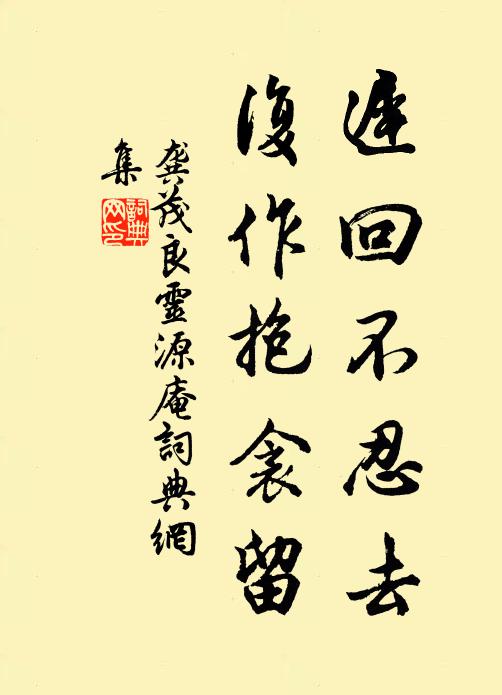 遲回不忍去
復作抱衾留
龔茂良靈源庵詞典網
集
詞典
网印